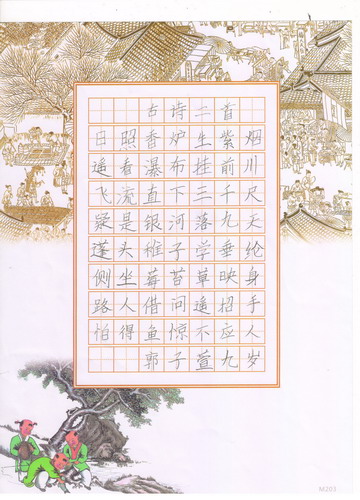 古诗二首
日照香炉生紫烟
遥看瀑布挂前川
飞流直下三千尺
疑是银河落九天
蓬头稚子学垂纶
侧坐莓苔草映身
路人借问遥招手
怕得鱼惊不应人
郭子萱九岁
M203